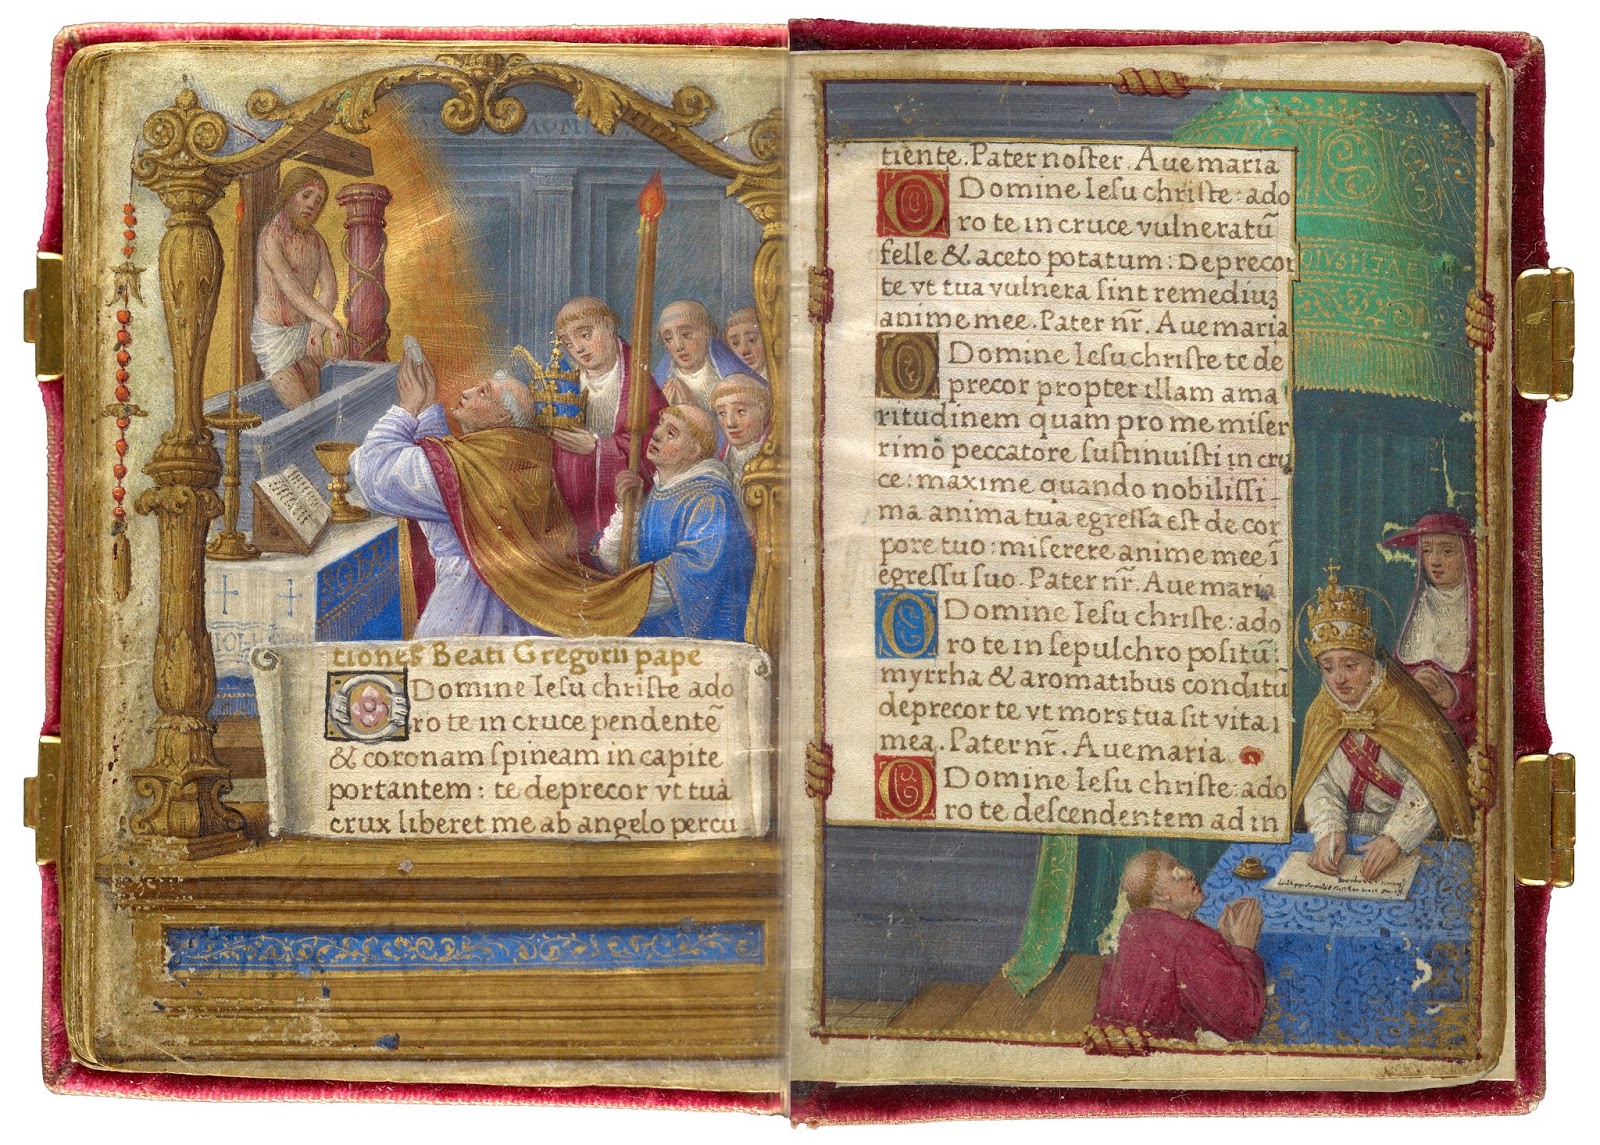 tiones Beati Gregorii pape
O Domine Iesu christe ado
ro te in cruce pendentē
& coronam spineam in capite
portantem : te deprecor vt tua
crux liberet me ab angelo percu
tiente. Pater noster. Aue maria
O Domine Iesu christe: ado
ro te in cruce vulneratū
felle & aceto potatum: Deprecor
te vt tua vulnera sint remediuʒ
anime mee. Pater nr̄. Aue maria
O Domine Iesu christe te de
precor propter illam ama
ritudinem quam pro me miser
rimo peccatore sustinuisti in cru
ce: maxime quando nobilissi
ma anima tua egressa est de cor
pore tuo: miserere anime mee ī
egressu suo. Pater nr̄. Aue maria
O Domine Iesu christe: ado
ro te in sepulchro positū:
myrrha & aromatibus conditū
deprecor te vt mors tua sit vita
mea. Pater nr̄. Aue maria
O Domine Iesu christe: ado
ro te descendentem ad in